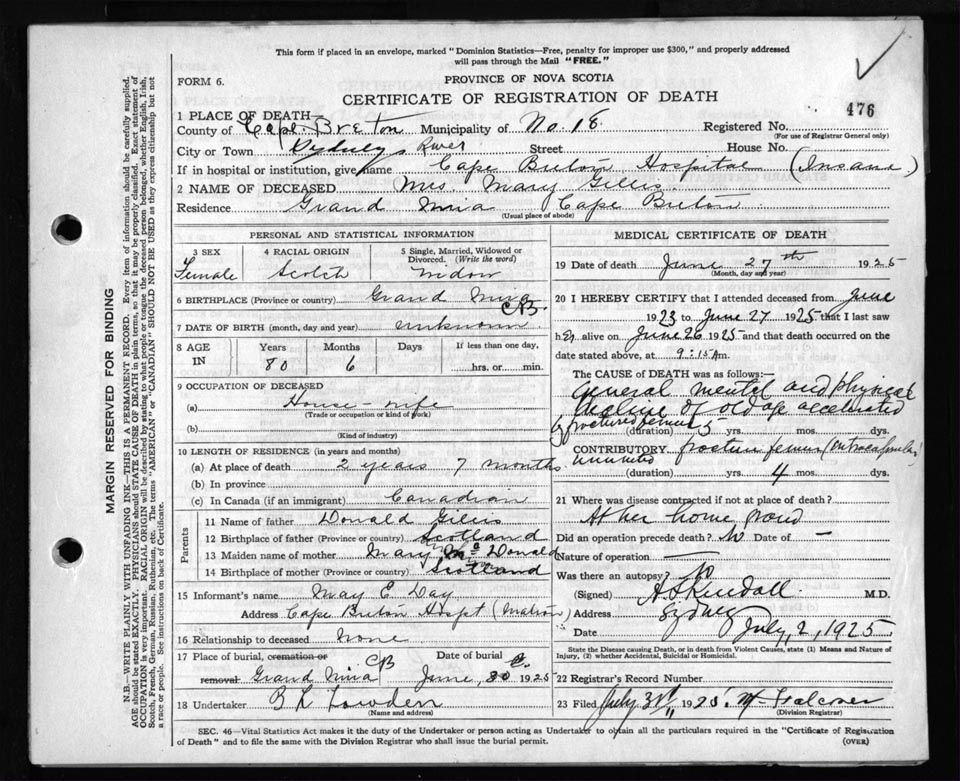 This form if placed in an envelope, marked "Dominion Statistics—Free, penalty for improper use $300," and properly addressed
will pass through the Mail "FREE."
FORM 6.
PROVINCE OF NOVA SCOTIA
CERTIFICATE OF REGISTRATION OF DEATH
476
1 PLACE OF DEATH—
County of Cape Breton Municipality of No. 18 Registered No.
(For use of Registrar General only)
City or Town Sydney River Street House No.
If in hospital or institution, give name Cape Breton Hospital (Insane)
2 NAME OF DECEASED Mrs. Mary Gillis
Residence Grand Mira Cape Breton
(Usual place of abode)
PERSONAL AND STATISTICAL INFORMATION
3 SEX
Female
4 RACIAL ORIGIN
Scotch
5 Single, Married, Widowed or
Divorced. (Write the word)
Widow
6 BIRTHPLACE (Province or country) Grand Mira
C.B.
7 DATE OF BIRTH (month, day and year) unknown
8 AGE
IN
Years
80
Months
6
Days
If less than one day,
hrs. or min.
9 OCCUPATION OF DECEASED
(a) House-wife
(Trade or occupation or kind of work)
(b)
(Kind of industry)
10 LENGTH OF RESIDENCE (in years and months)
(a) At place of death 2 years 7 months
(b) In province
(c) In Canada (if an immigrant) Canadian
Parents
11 Name of father Donald Gillis
12 Birthplace of father (Province or country) Scotland
13 Maiden name of mother Mary McDonald
14 Birthplace of mother (Province or country) Scotland
15 Informant's name May E Day
Address Cape Breton Hospt (Matron)
16 Relationship to deceased None
17 Place of burial, cremation or Date of burial
removal Grand Mira CB June, 30 1925
18 Undertaker Lowden
(Name and address)
MEDICAL CERTIFICATE OF DEATH
19 Date of death June 27th 1925
(Month, day and year)
20 I HEREBY CERTIFY that I attended deceased from June
1923 to June 27 1925 that I last saw
h er alive on June 26 1925 and that death occurred on the
date stated above, at 9:15 A m.
The CAUSE of DEATH was as follows:—
General mental and physical
decline of old age accelerated
by fractured femur
(duration) 5 yrs. mos. dys.
CONTRIBUTORY fracture femur
ununited
(duration) yrs. 4 mos. dys.
21 Where was disease contracted if not at place of death?
At her home
Did an operation precede death? No Date of —
Nature of operation —
Was there an autopsy? No
(Signed) A S Kendall M.D.
Address Sydney
Date July, 2, 1925
State the Disease causing Death, or in death from Violent Causes, state (1) Means and Nature of
Injury, (2) whether Accidental, Suicidal or Homicidal.
22 Registrar's Record Number
23 Filed July 3rd 1925 Falconer
(Division Registrar)
SEC. 46—Vital Statistics Act makes it the duty of the Undertaker or person acting as Undertaker to obtain all the particulars required in the "Certificate of Registration
of Death" and to file the same with the Division Registrar who shall issue the burial permit.
(OVER)
MARGIN RESERVED FOR BINDING
N.B.—WRITE PLAINLY WITH UNFADING INK—THIS IS A PERMANENT RECORD. Every item of information should be carefully supplied.
AGE should be stated EXACTLY. PHYSICIANS should STATE CAUSE OF DEATH in plain terms, so that it may be properly classified. Exact statement of
OCCUPATION is very important. RACIAL ORIGIN will be described by stating to what people or tongue the deceased person belonged, whether English, Irish,
Scotch, French, German, Russian, Ruthenian, etc. The terms "AMERICAN" or "CANADIAN" SHOULD NOT BE USED as they express citizenship but not
a race or people. See instructions on back of Certificate.